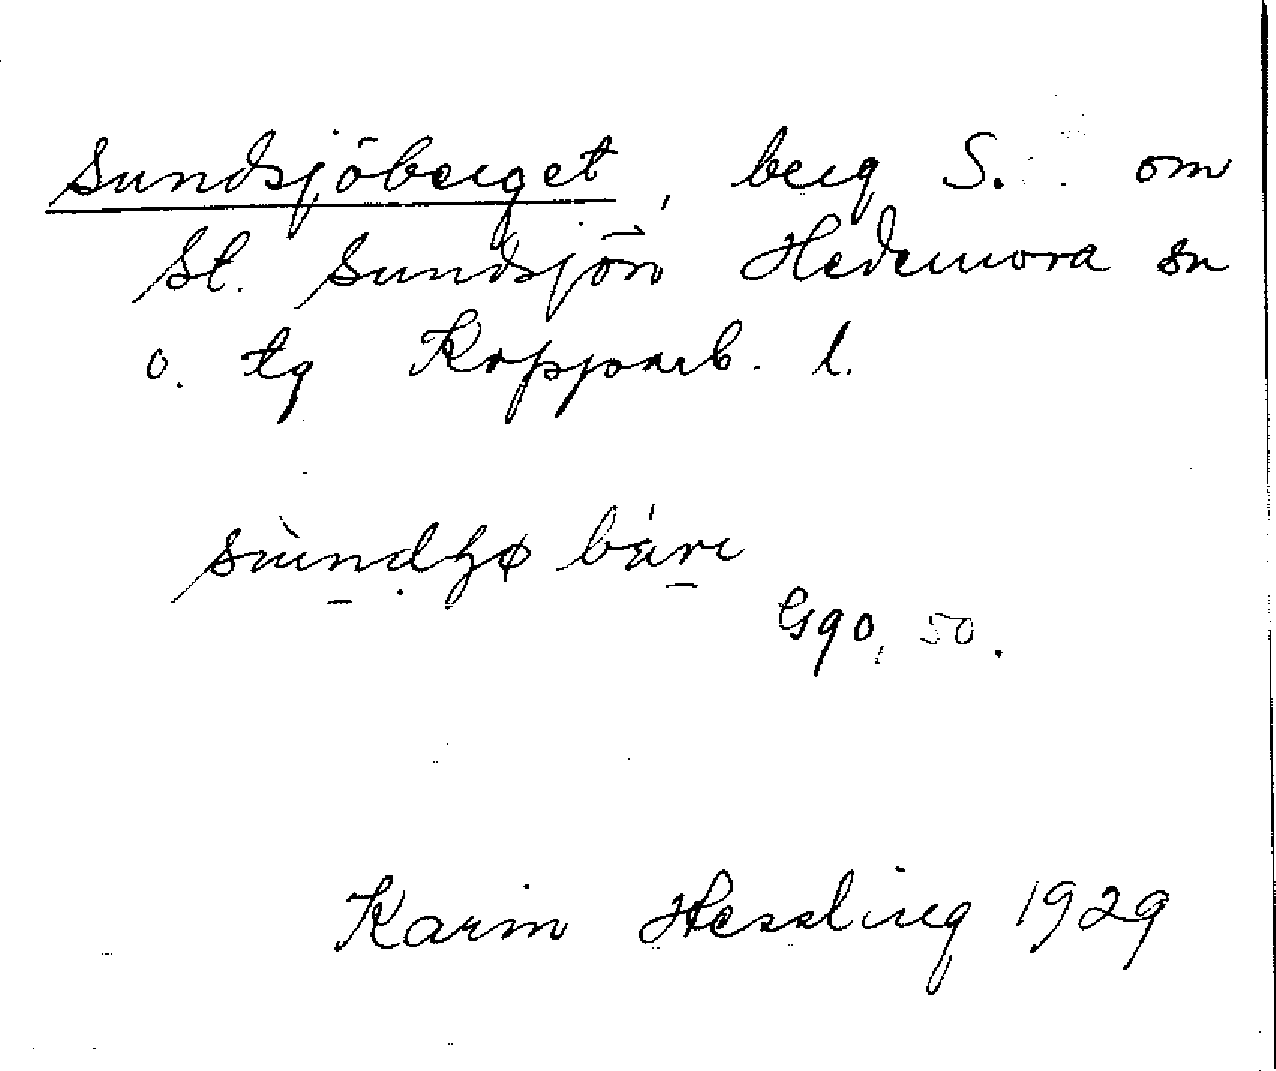 Sundsjöberget, berg S. om
St. Sundsjön Hedemora sn
o. tg Kopparb. l.
sùndʃø bárɩ
Ggo, 50.
Karin Hessling 1929